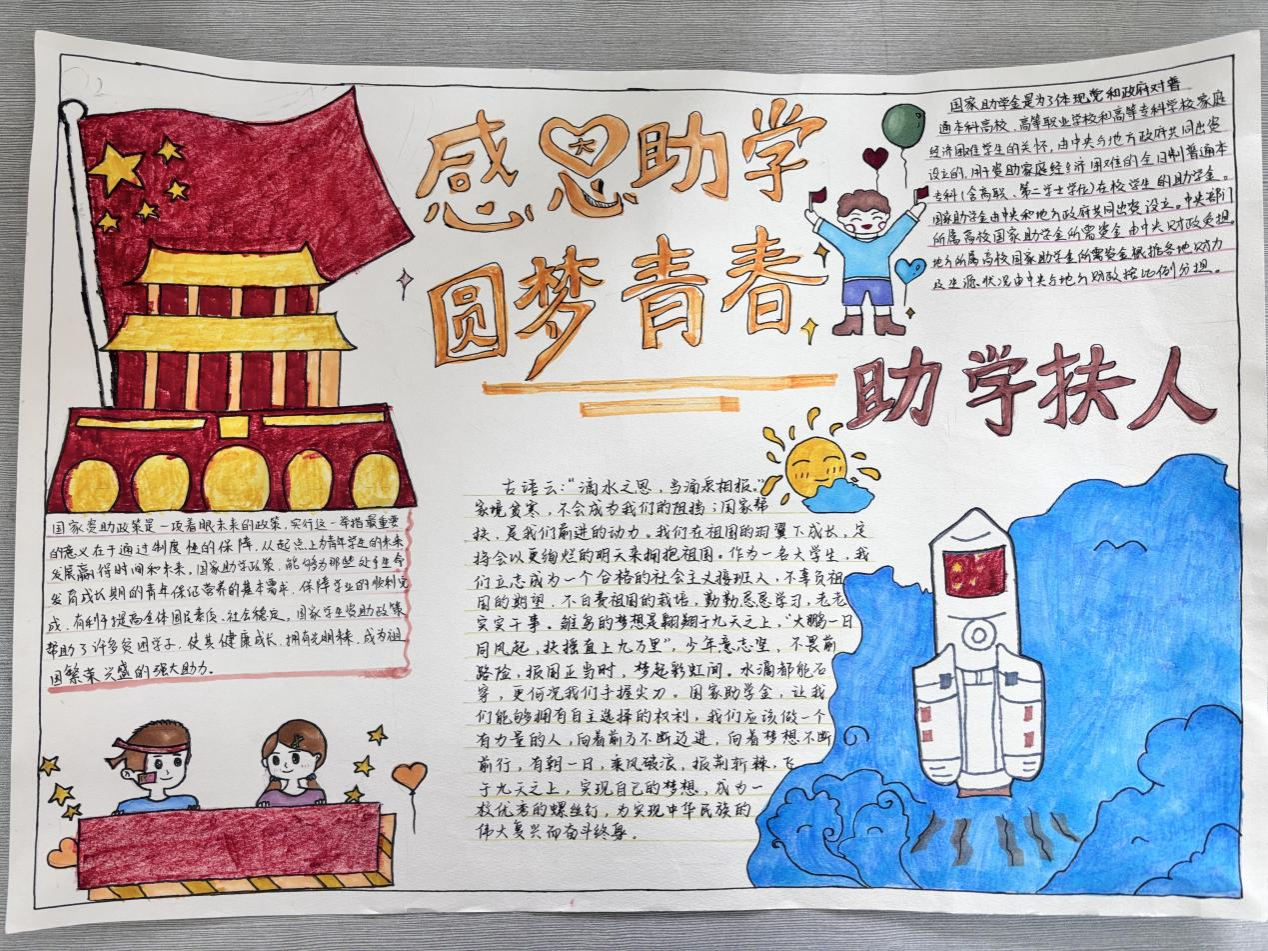 感恩助学
圆梦青春
国家助学金是为了体现党和政府对普
通本科高校、高等职业学校和高等专科学校家庭
经济困难学生的关怀，由中央与地方政府共同出资
设立的，用于资助家庭经济困难的全日制普通本
专科（含高职、第二学士学位）在校学生的助学金。
国家助学金由中央和地方政府共同出资设立。中央部门
所属高校国家助学金所需资金由中央财政负担。
地方所属高校国家助学金所需资金根据各地财力
及生源状况由中央与地方财政按比例分担。
助学扶人
古语云：“滴水之恩，当涌泉相报。”
家境贫寒，不会成为我们的阻挡；国家帮
扶，是我们前进的动力。我们在祖国的羽翼下成长，定
将会以更绚烂的明天来拥抱祖国。作为一名大学生，我
们立志成为一个合格的社会主义接班人，不辜负祖
国的期望，不白费祖国的栽培，勤勤恳恳学习，老老
实实干事。雏鸟的梦想是翱翔于九天之上，“大鹏一日
同风起，扶摇直上九万里”，少年意志坚，不畏前
路险，报国正当时，梦起彩虹间。水滴都能石
穿，更何况我们手握尖刀。国家助学金，让我
们能够拥有自主选择的权利，我们应该做一个
有力量的人，向着前方不断迈进，向着梦想不断
前行，有朝一日，乘风破浪，披荆折棘，飞
于九天之上，实现自己的梦想，成为一
枚优秀的螺丝钉，为实现中华民族的
伟大复兴而奋斗终身。
国家资助政策是一项着眼未来的政策，实行这一举措最重要
的意义在于通过制度性的保障，从起点上为青年学生的未来
发展赢得时间和未来。国家助学政策，能够为那些处于生命
发育成长期的青年保证营养的基本需求，保障学业的顺利完
成，有利于提高全体国民素质、社会稳定。国家学生资助政策
帮助了许多贫困学子，使其健康成长，拥有光明未来，成为祖
国繁荣兴盛的强大助力。